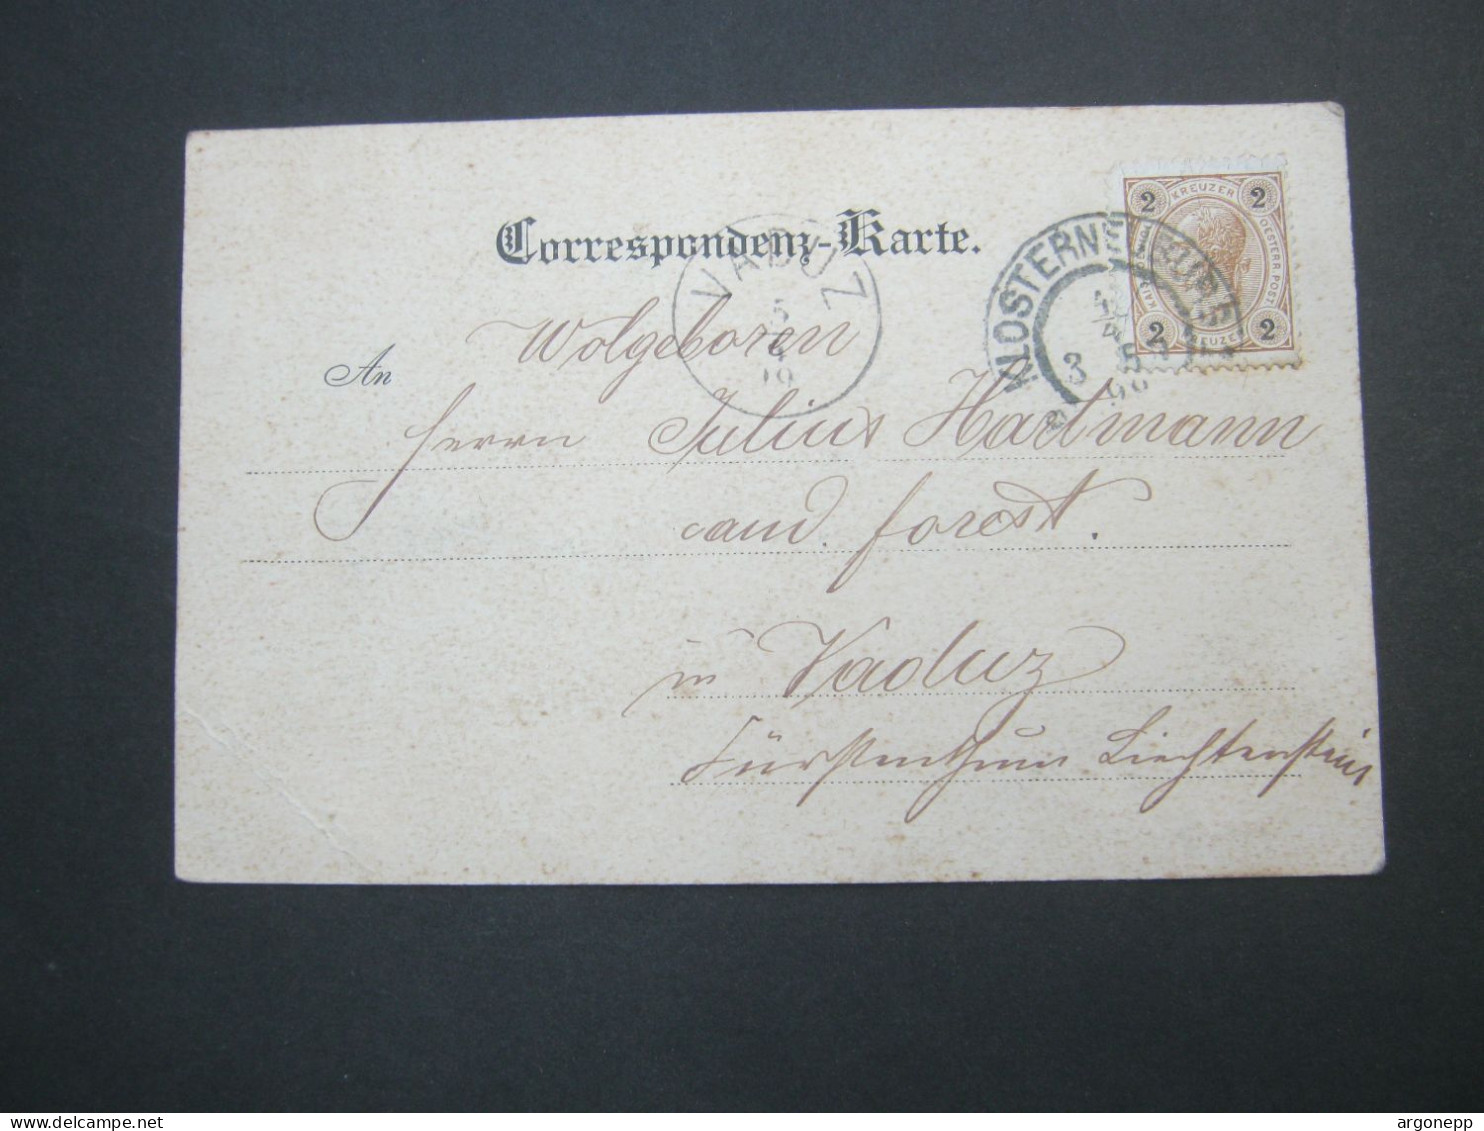 Correspondenz-Karte.
VADUZ
5
KLOSTERNEUBURG
3
2 KREUZER 2
OESTERR. POST
2 2
An
Wolgeboren
Herrn Julius Hartmann
cand. forest.
in Vaduz
Fürstenthum Liechtenstein
argonepp
www.delcampe.net